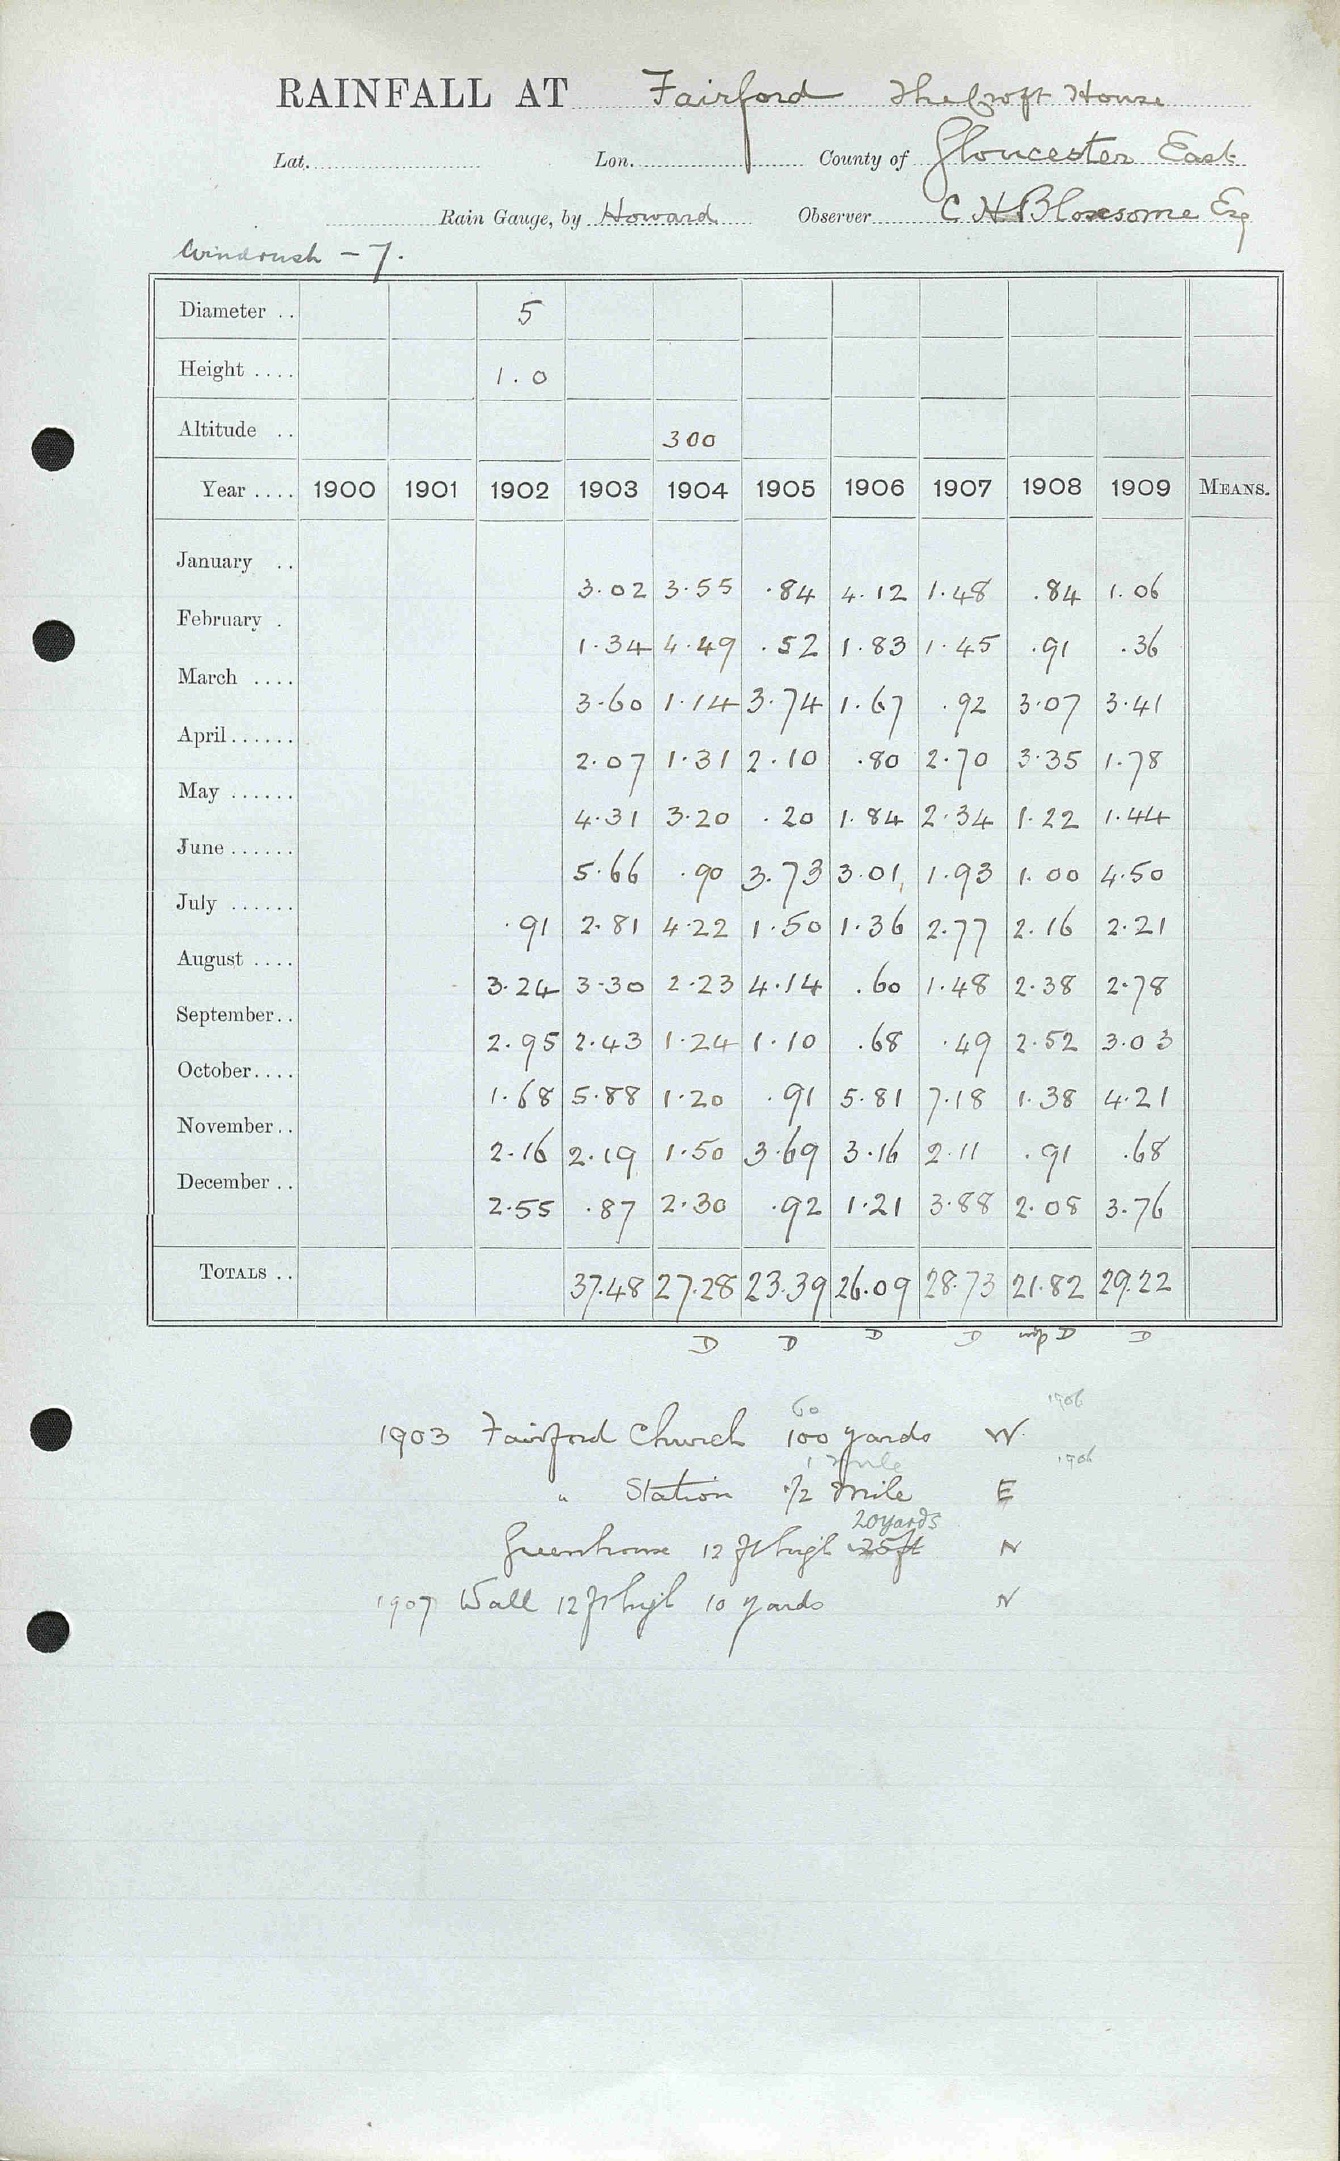 RAINFALL AT Fairford The Croft House
Lat. Lon. County of Gloucester East
Rain Gauge, by Howard Observer C H Blossome Esq
Windrush - 7.
Diameter .. 5
Height .... 1.0
Altitude .. 300
Year .... 1900 1901 1902 1903 1904 1905 1906 1907 1908 1909 MEANS.
January .. 3.02 3.55 .84 4.12 1.48 .84 1.06
February . 1.34 4.49 .52 1.83 1.45 .91 .36
March .... 3.60 1.14 3.74 1.67 .92 3.07 3.41
April...... 2.07 1.31 2.10 .80 2.70 3.35 1.78
May ...... 4.31 3.20 .20 1.84 2.34 1.22 1.44
June ...... 5.66 .90 3.73 3.01 1.93 1.00 4.50
July ...... .91 2.81 4.22 1.50 1.36 2.77 2.16 2.21
August .... 3.24 3.30 2.23 4.14 .60 1.48 2.38 2.78
September.. 2.95 2.43 1.24 1.10 .68 .49 2.52 3.03
October.... 1.68 5.88 1.20 .91 5.81 7.18 1.38 4.21
November.. 2.16 2.19 1.50 3.69 3.16 2.11 .91 .68
December .. 2.55 .87 2.30 .92 1.21 3.88 2.08 3.76
TOTALS .. 37.48 27.28 23.39 26.09 28.73 21.82 29.22
D D D D D D
60 1906
1903 Fairford Church 100 yards W
1 mile 1906
" Station 1/2 mile E
20 yards
Greenhouse 12 ft high 25ft N
1907 Wall 12 ft high 10 yards N